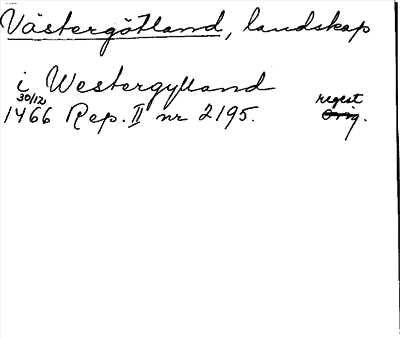 Västergötland, landskap
i Westergylland
30/12 regest
1466 Rep. II nr 2195. Orig.